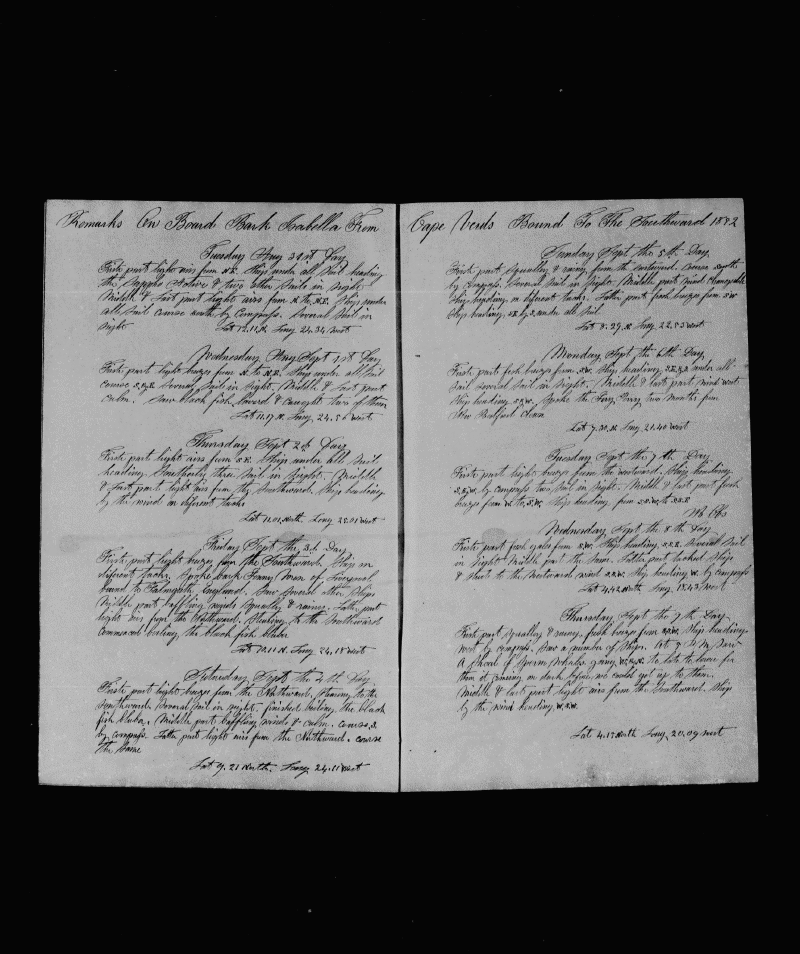 Remarks On Board Bark Isabella From
Tuesday Aug 31st Day
Firste part light airs from N.E. Ship under all Sail heading
the Sappho & two other Sails in sight
Middle & Last part light airs from N. to N.E. Ship under
all Sail course south by Compass. Several Sail in
sight Lat 12.11 N. Long 24.34 west
Wednesday Sept 1st Day
Firste part light breeze from N. to N.E. Ship under all Sail
course S.by E. Several Sail in Sight. Middle & Last part
calm. Saw black fish lowed & caught two of them
Lat 11.17 N. Long. 24.56 West
Thursday Sept 2d Day
Firste part light airs from S.E. Ship under all Sail
heading Southerly three Sail in Sight. Middle
& Last part light airs from the Southward. Ship heading
by the wind on diferent tacks
Lat 11.01 North. Long 25.01 West
Friday Sept the 3d Day
Firste part light breeze from the Southward. Ship on
diferent tacks. Spoke bark of Liverpool
bound to Falmouth, England. Saw several other Ships
Middle part baffling winds squally & rainy. Latter part
light airs from the Northward. Steering to the Southward
Commenced boiling the black fish bluber
Lat 10.11 N. Long 24.18 West
Saturday Sept the 4th Day
Firste part light breeze from the Northward, Steering to the
Southward. Several Sail in sight. finished boiling the black
fish bluber. Middle part baffling winds & calm. Course S.
by compass. Latter part light airs from the Northward. course
the same
Lat 9.21 North. Long 24.11 West
Cape Verds Bound To The Southward 1882
Sunday Sept the 5th Day,
Firste part, Squally & rainy from the westward. Course South
by Compass. Several Sail in Sight. Middle part wind changeable
Ship heading on diferent tacks. Latter part fresh breeze from S.W.
Ship heading S.E. by S. under all sail
Lat 8.29 N. Long. 22.55 West
Monday Sept the 6th Day,
Firste part fresh breeze from S.W. Ship heading S.E. by S. under all
Sail several Sail in Sight. Middle & last part wind West
Ship heading S.S.W. Spoke the two months from
New Bedford clean
Lat 7.30 N. Long 21.40 West
Tuesday Sept the 7th Day
Firste part light breeze from the westward. Ship heading
by compass two Sail in Sight. Middle & last part fresh
breeze from W. to S.W. Ship heading from S.S.W. to S.S.E
No Obs
Wednesday Sept the 8th Day
Firste part fresh gale from S.W. Ship heading S.S.E. Several Sail
in Sight. Middle part the Same. Latter part tacked Ship
& stood to the Westward wind S.S.W. Ship heading W. by compass
Lat 4.42 North Long 18.43 West
Thursday Sept the 9th Day.
Firste part squalley & rainy. fresh breeze from Ship heading
West by compass. Saw a number of Ships. At 5 P.M. Saw
A Shoal of Sperm Whales going to late to lower for
them it coming on dark before we could get up to them.
Middle & last part light airs from the Southward. Ship
by the wind heading W.S.W.
Lat 4.17 North Long. 20.09 West